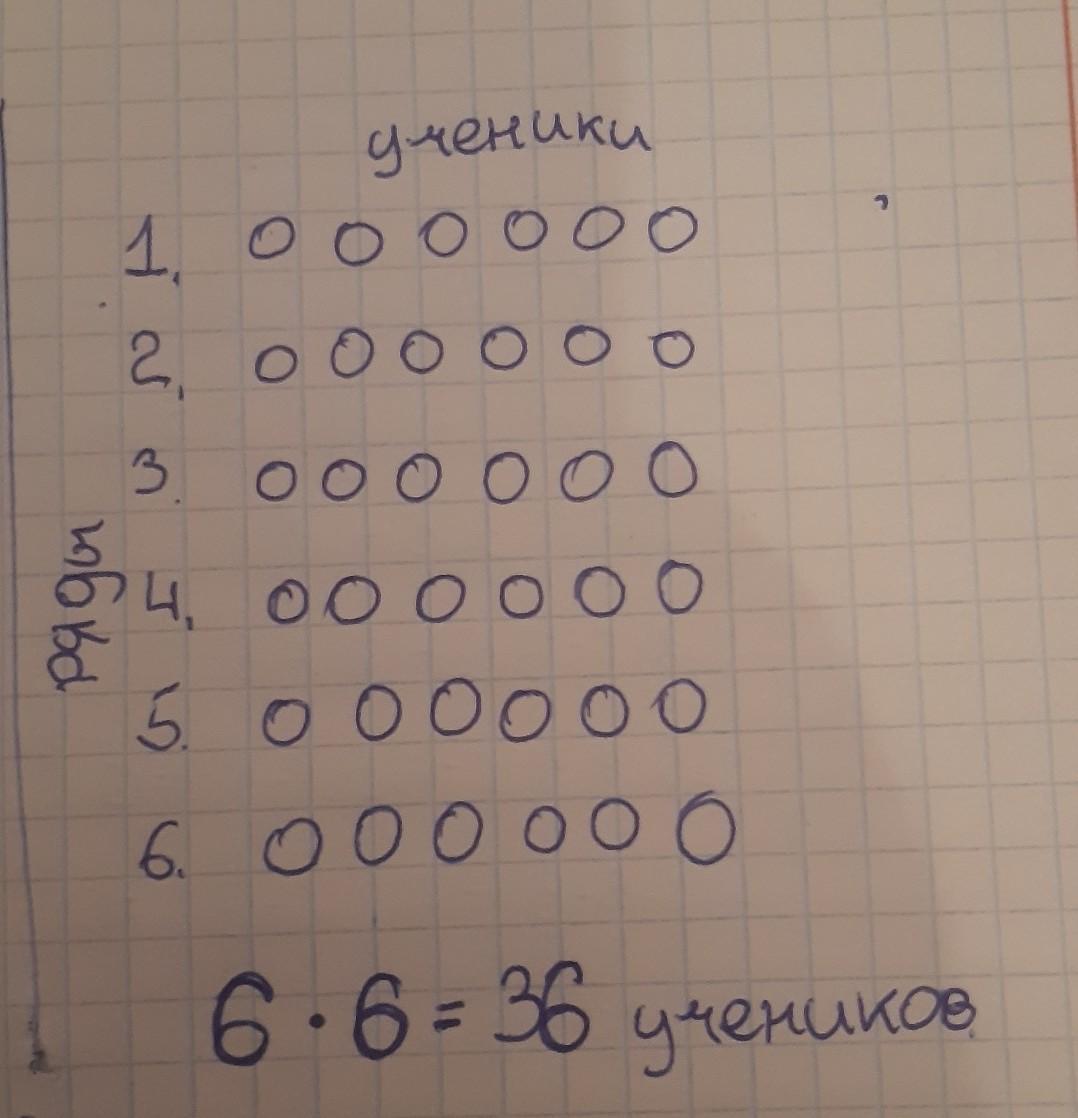 ученики
1. O O O O O O
2. O O O O O O
3. O O O O O O
ряды
4. O O O O O O
5. O O O O O O
6. O O O O O O
6 · 6 = 36 учеников.